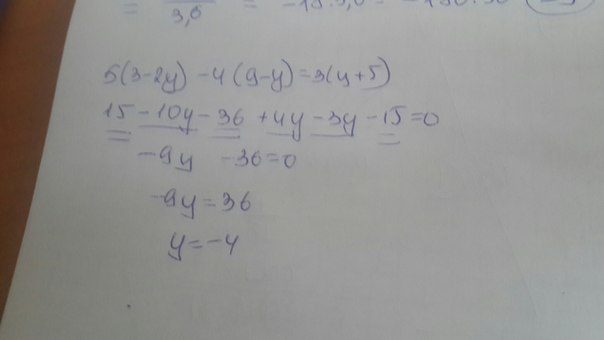 = 3,6 = -18.3,6 =
5(3-2y)-4(9-y)=3(y+5)
15-10y-36+4y-3y-15=0
-9y -36=0
-9y=36
y=-4